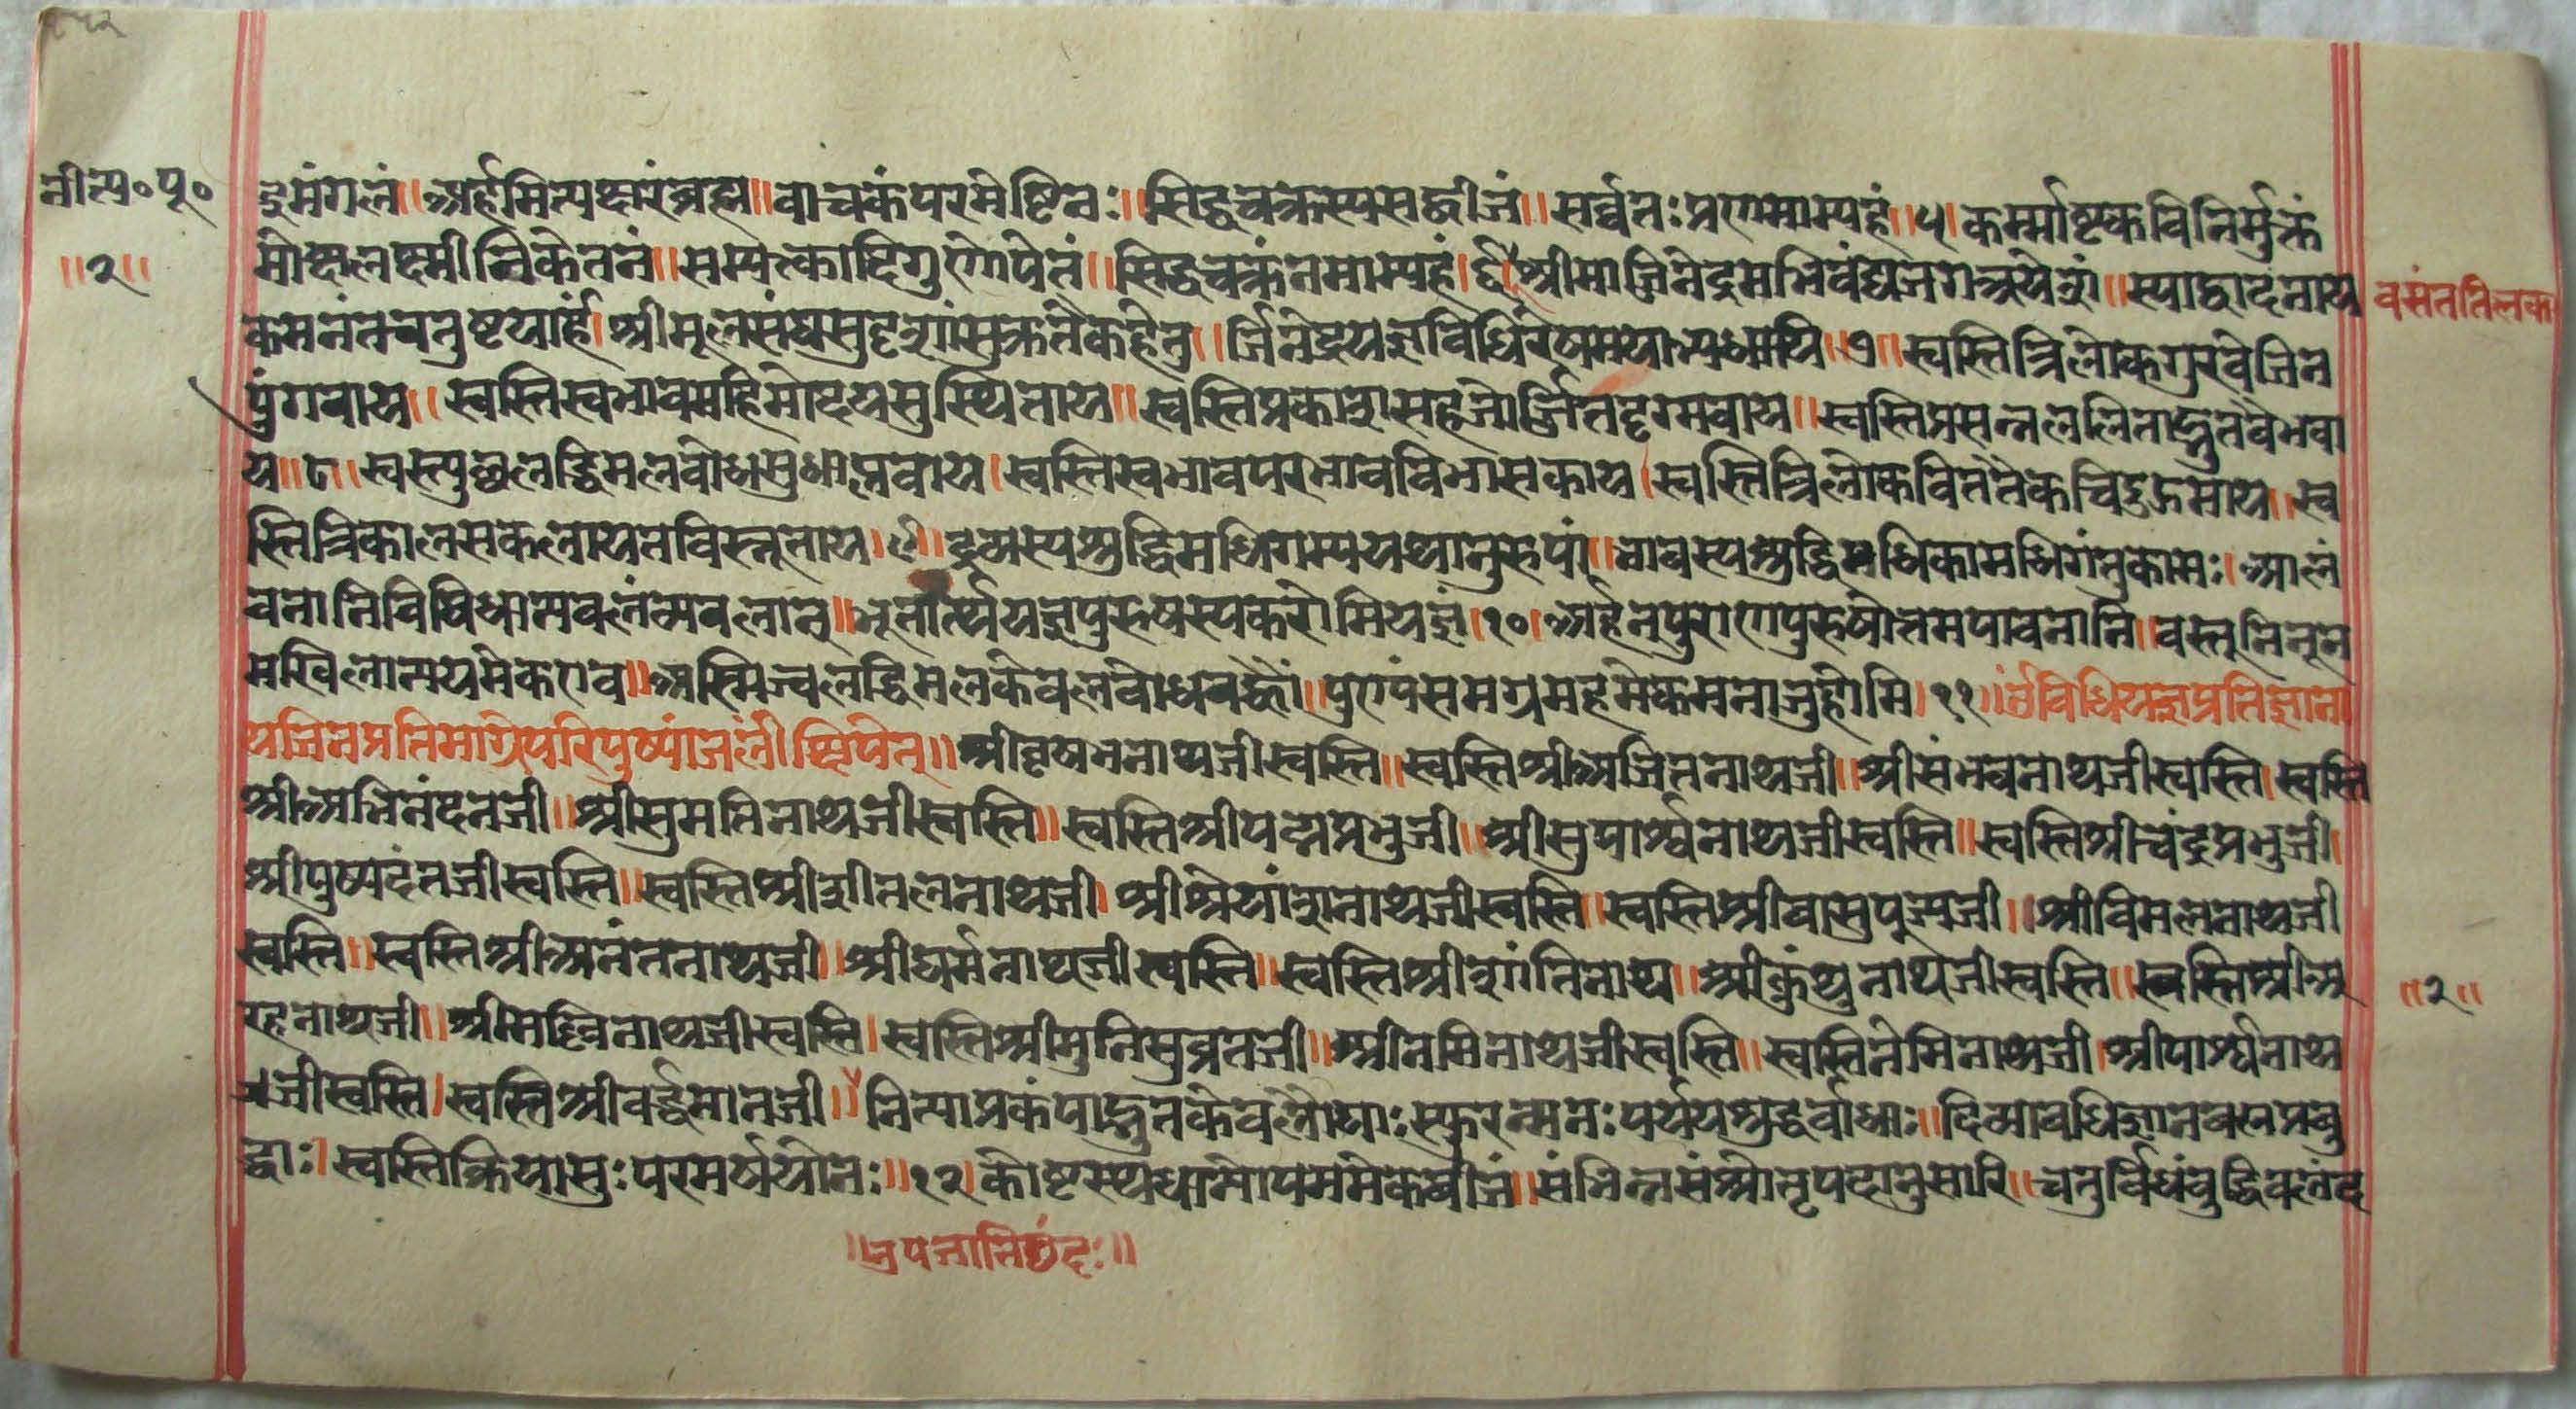 नीत्य॰पू॰
॥२॥
द्रुमंगलं॥अर्हमित्यक्षरंब्रह्म॥वाचकंपरमेष्टिनः॥सिद्धचक्रस्यसद्बीजं॥सर्व्वतःप्रणमाम्यहं॥५।कर्म्माष्टकविनिर्मुक्तं
मोक्षलक्ष्मीनिकेतनं॥सम्यत्कादिगुणोपेतं॥सिद्धचक्रंनमाम्यहं।६॥श्रीमाजिनेंद्रमभिवंद्यजगत्रयेशं॥स्याद्वादनाय
वसंततिलका
कमनंतचतुष्टयार्हं।श्रीमूलसंघसुदृशांसुक्रतैकहेतु॥र्जिनेंद्रयज्ञविधिरेषमयाभ्यधायि॥७॥स्वस्तित्रिलोकगुरवेजिन
पुंगवाय॥स्वस्तिस्वभावमहिमोदयसुस्थिताय॥स्वस्तिप्रकाशसहजोर्ज्जितदृग्मयाय॥स्वस्तिप्रसन्नललिताद्भुतवैभवा
य॥८।स्वस्त्युछलद्विमलबोधसुधाप्लवाय।स्वस्तिस्वभावपरभावविभासकाय।स्वस्तित्रिलोकविततैकचिदुद्गमाय॥स्व
स्तित्रिकालसकलायतविस्तृताय।९॥द्रव्यस्यशुद्धिमधिगम्ययथानुरुपां॥भावस्यशुद्धिमधिकामधिगंतुकामः।आलं
बनानिविविधान्यवलंब्यवलान्॥भूतार्त्थयज्ञपुरुषस्यकरोमियज्ञं।१०।अर्हनपुराणपुरुषोत्तमपावनानि।वस्तूनिनून
मखिलान्ययमेकएव॥अस्मिज्वलद्विमलकेवलबोधवह्नौ॥पुण्यंसमग्रमहमेकमनाजुहोमि।११॥इतिविधियज्ञप्रतिज्ञाना
यजिनप्रतिमाग्रेपरिपुष्पांजलीक्षिपेत्॥श्रीवृषभनाथजीस्वस्ति॥स्वस्तिश्रीअजितनाथजी॥श्रीसंभवनाथजीस्वस्ति।स्वस्ति
श्रीअभिनंदनजी॥श्रीसुमतिनाथजीस्वस्ति॥स्वस्तिश्रीपद्मप्रभुजी॥श्रीसुपार्श्वनाथजीस्वस्ति॥स्वस्तिश्रीचंद्रप्रभुजी।
श्रीपुष्पदंतजीस्वस्ति॥स्वस्तिश्रीशीतलनाथजी।श्रीश्रेयांशनाथजीस्वस्ति॥स्वस्तिश्रीवासुपूज्यजी॥श्रीविमलनाथजी
स्वस्ति॥स्वस्तिश्रीअनंतनाथजी॥श्रीधर्मनाथजीस्वस्ति॥स्वस्तिश्रीशांतिनाथ॥श्रीकुंथुनाथजीस्वस्ति॥स्वस्तिश्रीअ
॥२॥
रहनाथजी॥श्रीमल्लिनाथजीस्वस्ति।स्वस्तिश्रीमुनिसुव्रतजी॥श्रीनमिनाथजीस्वस्ति॥स्वस्तिनेमिनाथजी।श्रीपार्श्वनाथ
जीस्वस्ति।स्वस्तिश्रीवर्द्धमानजी॥नित्याप्रकंपाद्भुतकेवलौघाःस्फुरन्मनःपर्ययशुद्धबोधाः॥दिव्यावधिज्ञानबलप्रबु
द्धाः।स्वस्तिक्रियासुःपरमर्षयोनः॥१२।कोष्टस्थधान्योपममेकबीजं॥संभिन्नसंश्रोतृपदानुसारि॥चतुर्विधंबुद्धिबलंद
॥उपजातिछंदः॥